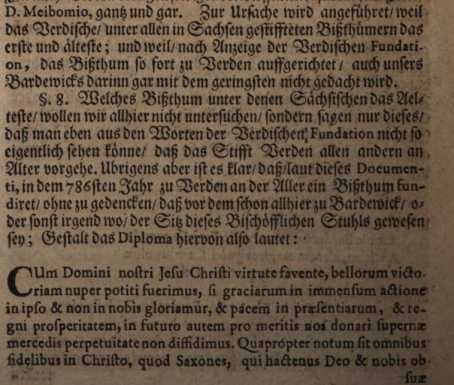 D. Meibomio, gantz und gar. Zur Ursache wird angeführet/ weil
das Verdische/ unter allen in Sachsen gestiffteten Bißthümern das
erste und älteste; und weil/ nach Anzeige der Verdischen Fundati-
on, das Bißthum so fort zu Verden auffgerichtet/ auch unsers
Bardewicks darinn gar mit dem geringsten nicht gedacht wird.
§. 8. Welches Bißthum unter denen Sächsischen das Ael-
teste/ wollen wir allhier nicht untersuchen/ sondern sagen nur dieses/
daß man eben aus den Worten der Verdischen Fundation nicht so
eigentlich sehen könne/ daß das Stifft Verden allen andern an
Alter vorgehe. Ubrigens aber ist es klar/ daß/ laut dieses Documen-
ti, in dem 786sten Jahr zu Verden an der Aller ein Bißthum fun-
diret/ ohne zu gedencken/ daß vor dem schon allhier zu Bardewick/ o-
der sonst irgend wo/ der Sitz dieses Bischöfflichen Stuhls gewesen
sey; Gestalt das Diploma hiervon also lautet:
CUm Domini nostri Jesu Christi virtute favente, bellorum victo-
riam nuper potiti fuerimus, si graciarum in immensum actione
in ipso & non in nobis gloriamur, & pacem in præsentiarum, & re-
gni prosperitatem, in futuro autem pro meritis nos donari supernæ
mercedis perpetuitate non diffidimus. Quapropter notum sit omnibus
fidelibus in Christo, quod Saxones, qui hactenus Deo & nobis ob
suæ